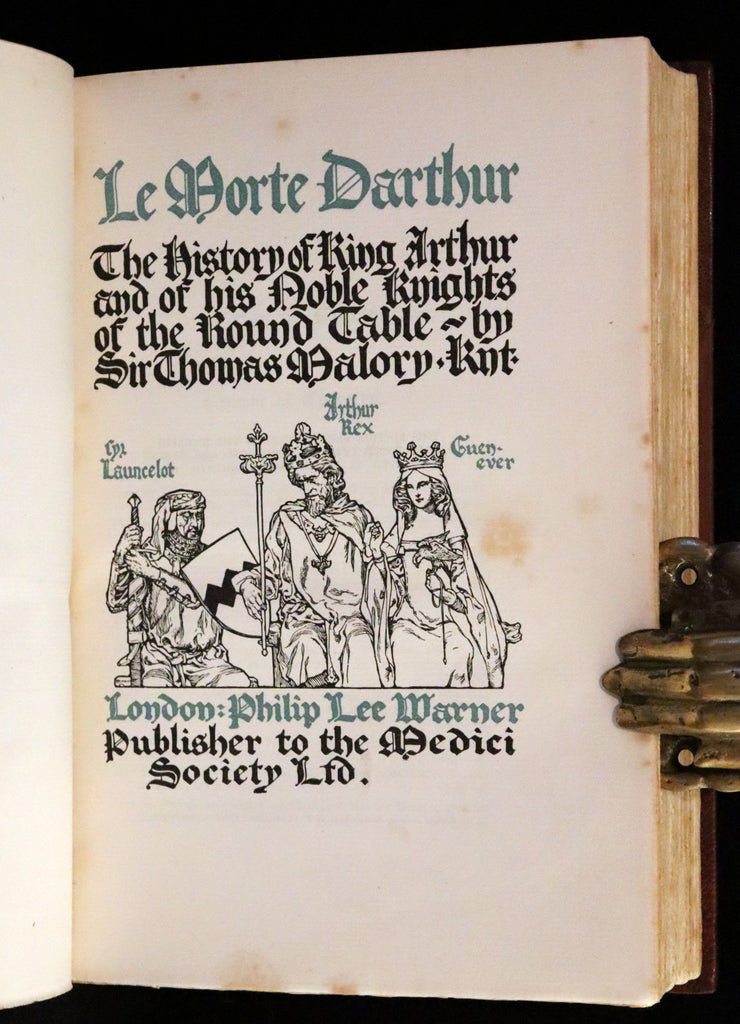 Le Morte Darthur
The History of King Arthur
and of his Noble Knights
of the Round Table ~ by
Sir Thomas Malory · Knt ·
Arthur
Rex
Syr
Launcelot
Guen-
ever
London: Philip Lee Warner
Publisher to the Medici
Society Ltd.